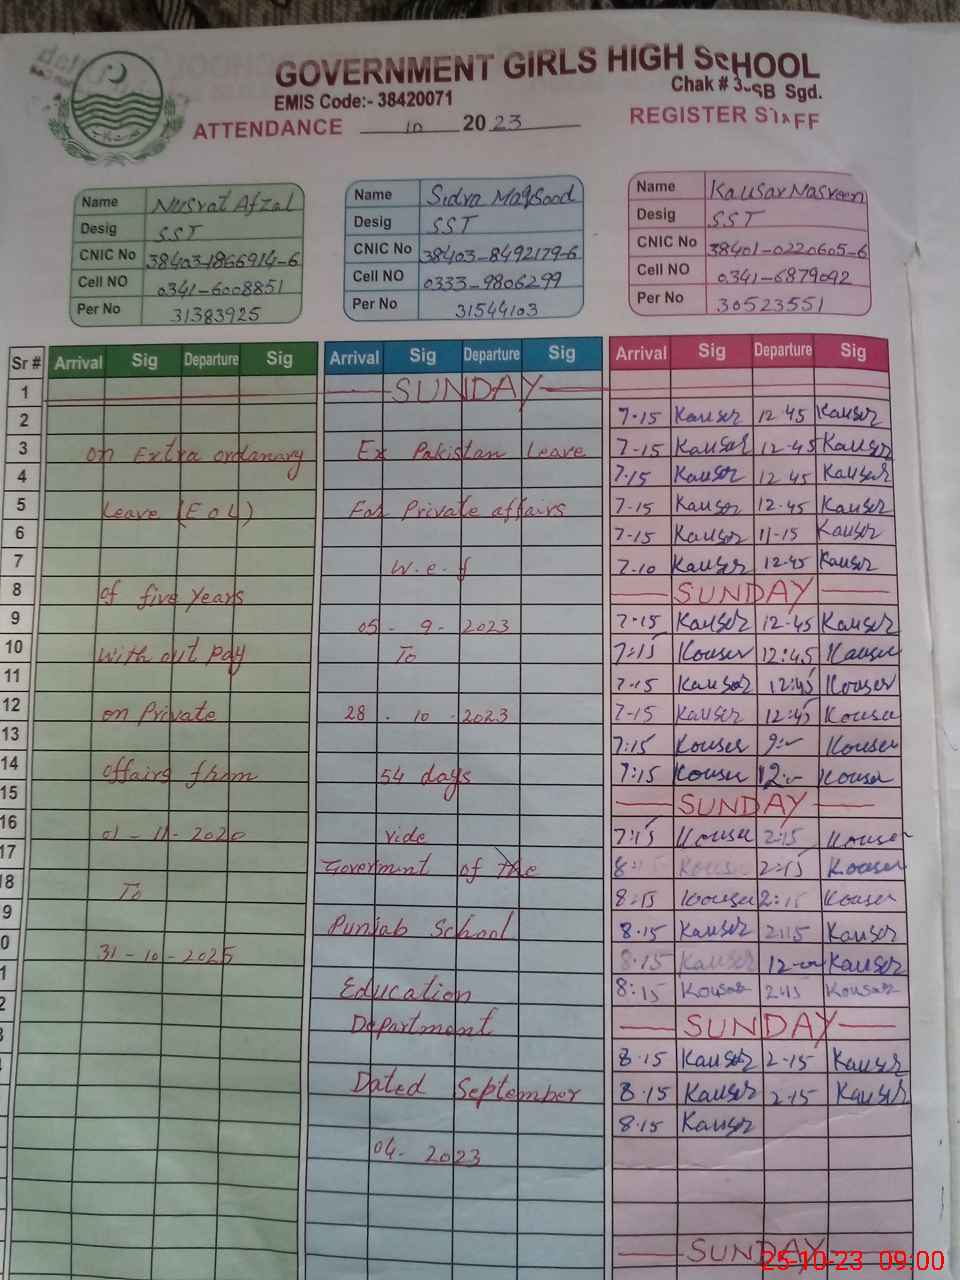 GOVERNMENT GIRLS HIGH SCHOOL
EMIS Code:- 38420071
Chak # SB Sgd.
ATTENDANCE 10 2023 REGISTER STAFF
Name Nusrat Afzal
Desig SST
CNIC No 38403-1866914-6
Cell NO 0341-6008851
Per No 31383925
Name Sidra Maqsood
Desig SST
CNIC No 38403-8492179-6
Cell NO 0333-9806299
Per No 31544103
Name Kausar Nasreen
Desig SST
CNIC No 38401-0220605-6
Cell NO 0341-6879092
Per No 30523551
Sr # Arrival Sig Departure Sig Arrival Sig Departure Sig Arrival Sig Departure Sig
1 SUNDAY
2 7-15 Kauser 12-45 Kauser
3 on Extra ordanary Ex Pakistan Leave 7-15 Kauser 12-45 Kauser
4 7-15 Kauser 12-45 Kauser
5 Leave (EOL) For Private affairs 7-15 Kauser 12-45 Kauser
6 7-15 Kauser 11-15 Kauser
7 w.e.f 7-10 Kauser 12-45 Kauser
8 of five years SUNDAY
9 05 - 9 - 2023 7-15 Kauser 12-45 Kauser
10 with out pay To 7:15 Kouser 12:45 Kauser
11 7-15 Kauser 12:45 Kouser
12 on Private 28 . 10 . 2023 7-15 Kauser 12:45 Kouser
13 7:15 Kouser 9:- Kouser
14 affairs from 54 days 7:15 Kouser 12:- Kouser
15 SUNDAY
16 01-11-2020 vide 7:15 Kouser 2:15 Kouser
17 Goverment of the 8: Kouser 2:15 Kouser
18 To 8:15 Kouser 2:15 Kouser
9 Punjab School 8.15 Kauser 2:15 Kauser
0 31-10-2025 8.15 Kauser 12-00 Kauser
1 Education 8:15 Kousar 2:15 Kousar
2 Department SUNDAY
3 8.15 Kauser 2-15 Kauser
Dated September 8.15 Kauser 2-15 Kauser
8.15 Kauser
04- 2023
SUNDAY
25-10-23 09:00